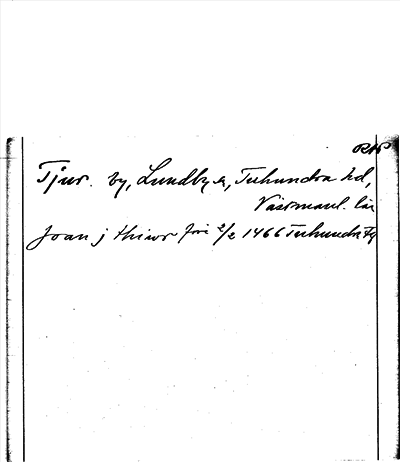 RAP
Tjur. by, Lundby s., Tuhundra hd,
Västmanl. län
Joan j thiwr 2/2 1466 Tuhundra